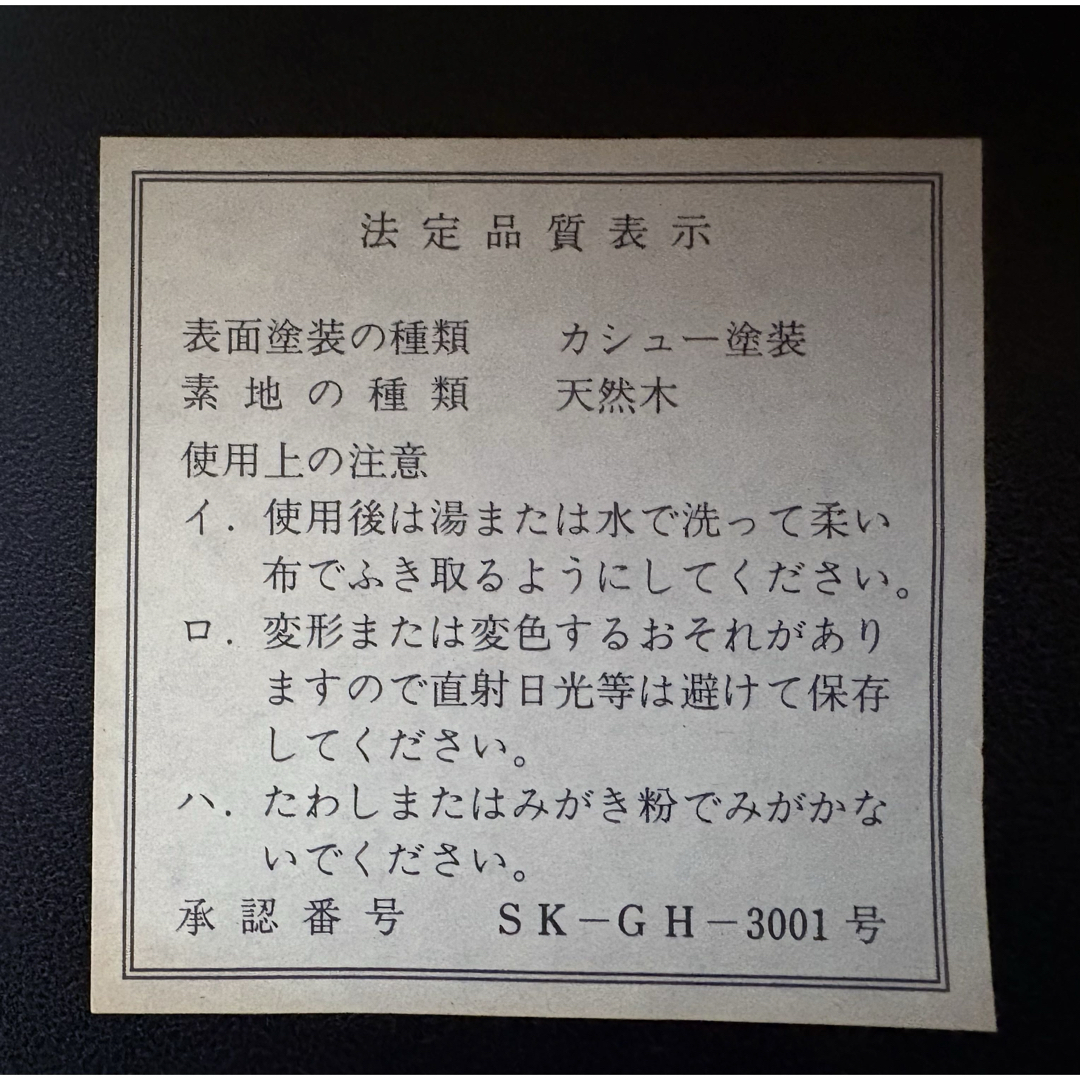 法定品質表示
表面塗装の種類　カシュー塗装
素地の種類　天然木
使用上の注意
イ. 使用後は湯または水で洗って柔い
布でふき取るようにしてください。
ロ. 変形または変色するおそれがあり
ますので直射日光等は避けて保存
してください。
ハ. たわしまたはみがき粉でみがかな
いでください。
承認番号　SK－GH－3001号